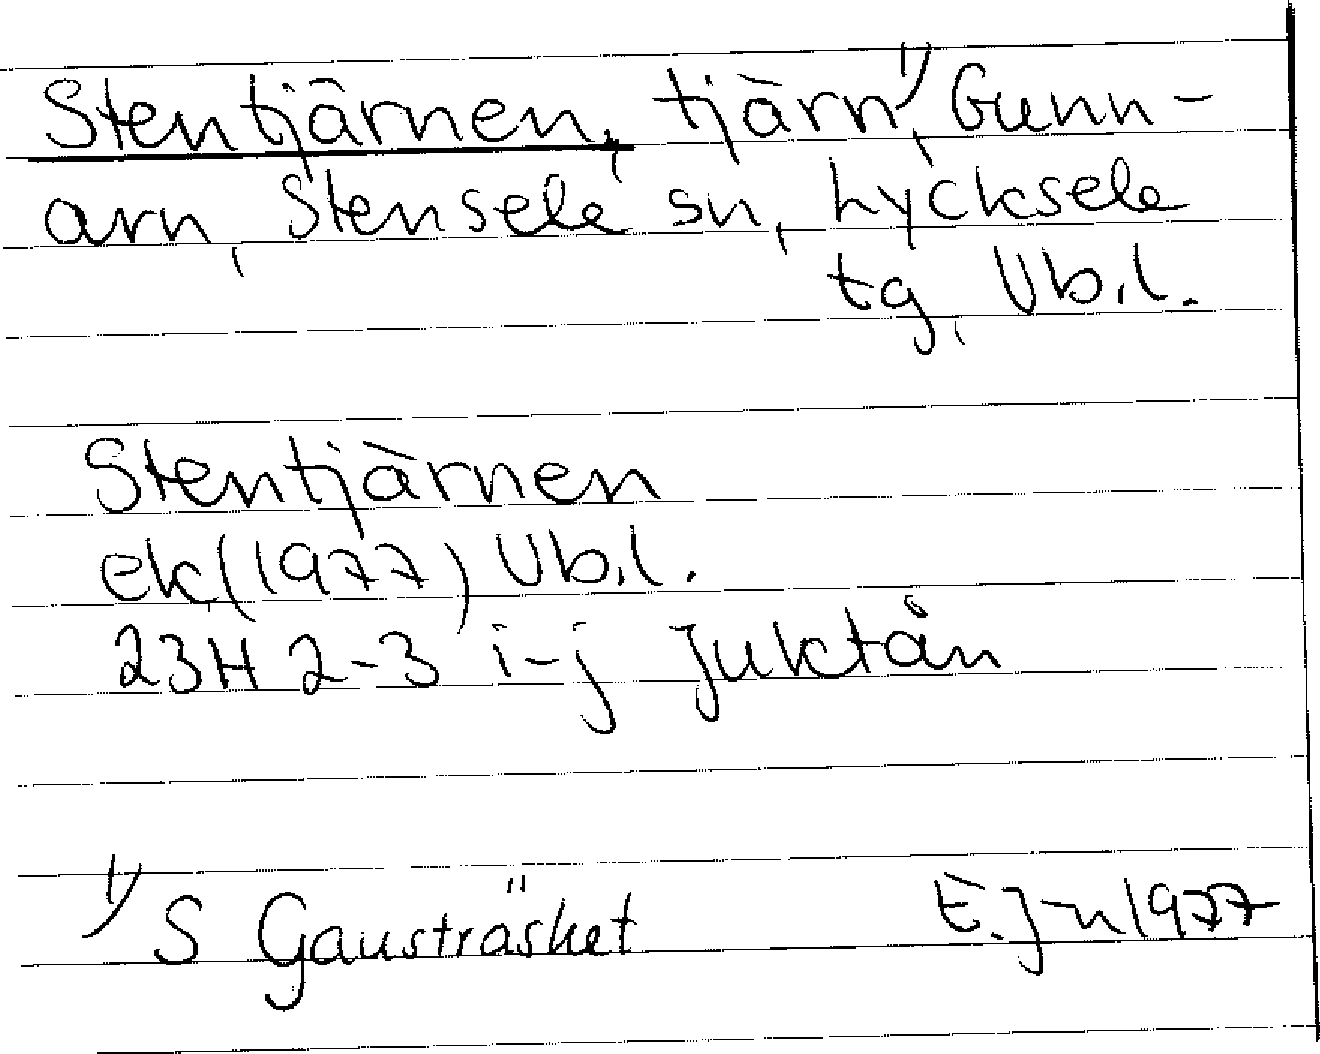 Stentjärnen, tjärn¹⁾, Gunn-
arn, Stensele sn, Lycksele
tg, Vb.l.
Stentjärnen
ek (1977) Vb.l.
23H 2-3 i-j Juktån
¹⁾ S Gausträsket E. J-n 1977